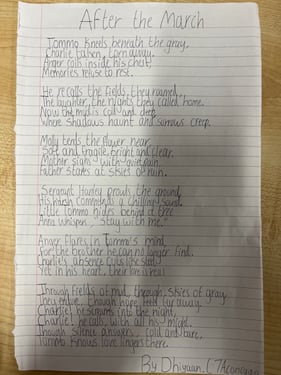 After the March
Tommo kneels beneath the gray,
Charlie taken, torn away.
Anger coils inside his chest,
Memories refuse to rest.
He recalls the fields they roamed,
The laughter, the nights they called home.
Now the mud is cold and deep
Where shadows haunt and sorrows creep.
Molly tends the flower near,
Soft and fragile, bright and clear.
Mother signs with quiet pain,
Father stares at skies of ruin.
Sergeant Hanley prowls the ground,
His harsh commands a chilling sound.
Little Tommo hides behind a tree
Anna whispers, "Stay with me."
Anger flares in Tommo's mind,
For the brother he can no longer find.
Charlie's absence cuts like
Yet in his heart, their love is real
Through fields of mud, through skies of gray
They endure, though hope feels far away.
Charlie! he screams into the night,
Charlie! he calls, with all his might.
Though silence answers, cold and bare,
Tommo knows love lingers there.
By Dhiyaan.